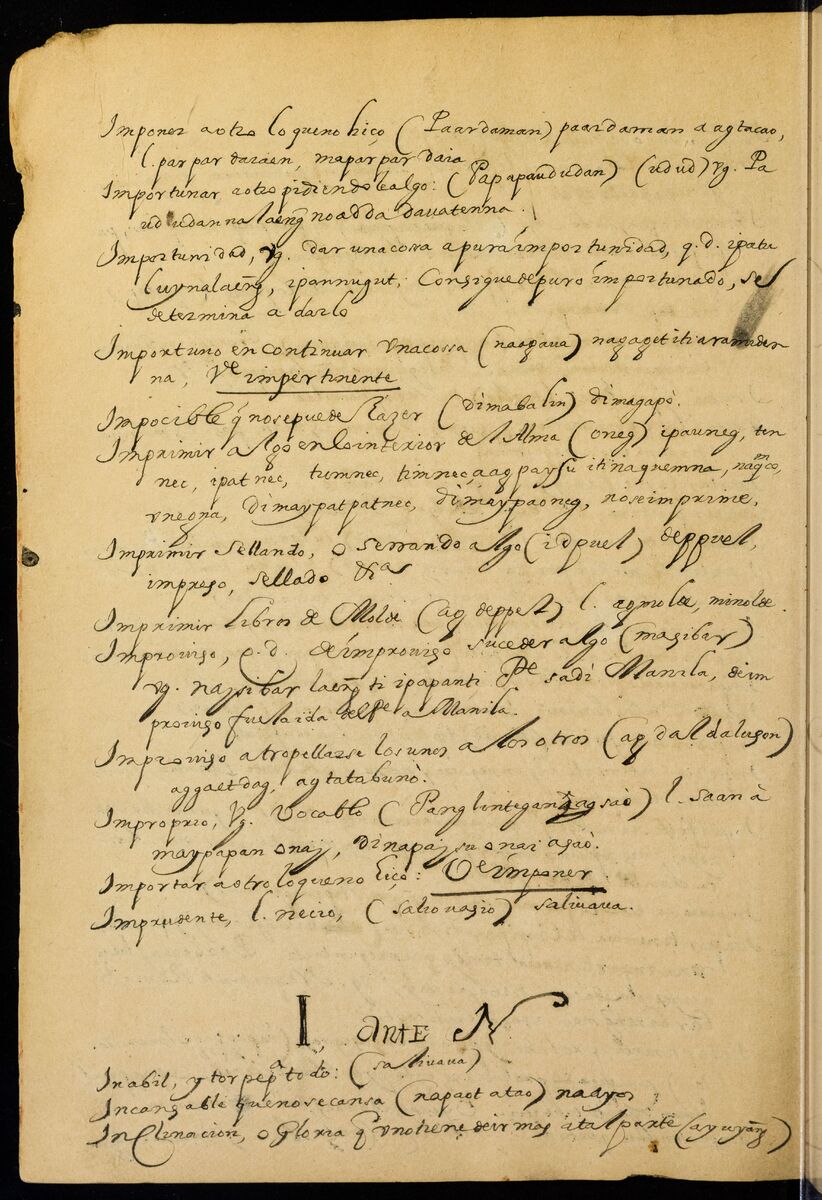 Imponer a otro lo que no hiço (Paardaman) paardaman a agtacao,
l. parpardaraen, maparpardaia
Importunar a otro pidiendole algo: (Papapaududan) (udud) vg. Pa
ududanna laeng no adda davatenna.
Importunidad, vg. dar una cossa a pura importunidad, q. d. ipatu
luynalaeng, ipannugut, Consigue de puro importunado, se
determina a darlo
Importuno en continuar una cossa (nasgava) nagaget iti
na, Ve impertinente
Impocible q̃ no se puede hazer (dimabalin) dimagapò.
Imprimir algo en lo interior del Alma (oneg) ipauneg, ten
nec, ipatnec, tumnec, timnec, aagpaysu iti naquemna,
unegna, dimaypatpatnec, dimaypaoneg, no se imprime,
Imprimir sellando, o serrando algo (idpuel) deppuel,
impreso, sellado &as
Imprimir libros de Molde (ag deppel) l. agmolde, minolde.
Improviso, q. d. de improviso suceder algo (masibar)
vg. naysibar laeng ti ipapanti Pe sadi Manila, de im
proviso fue la ida del Pe a Manila.
Improviso atropellarse los unos a los otros (ag daldaluson)
aggaetdag, agtatabunò.
Improprio, vg. vocablo (Panglintegan agsaò) l. saan à
maypapan onay, dinapaysu onai asaò.
Importar a otro lo que no hiço: Ve imponer.
Imprudente, l. necio, (salio uasio) saliuaua.
I, ante N
Inabil, y torpe pa todo: (saliuaua)
Incansable que no se cansa (napaot atao) naayos
Inclinacion, o Gloria q̃ uno tiene de ir mas ital parte (ayuyang)